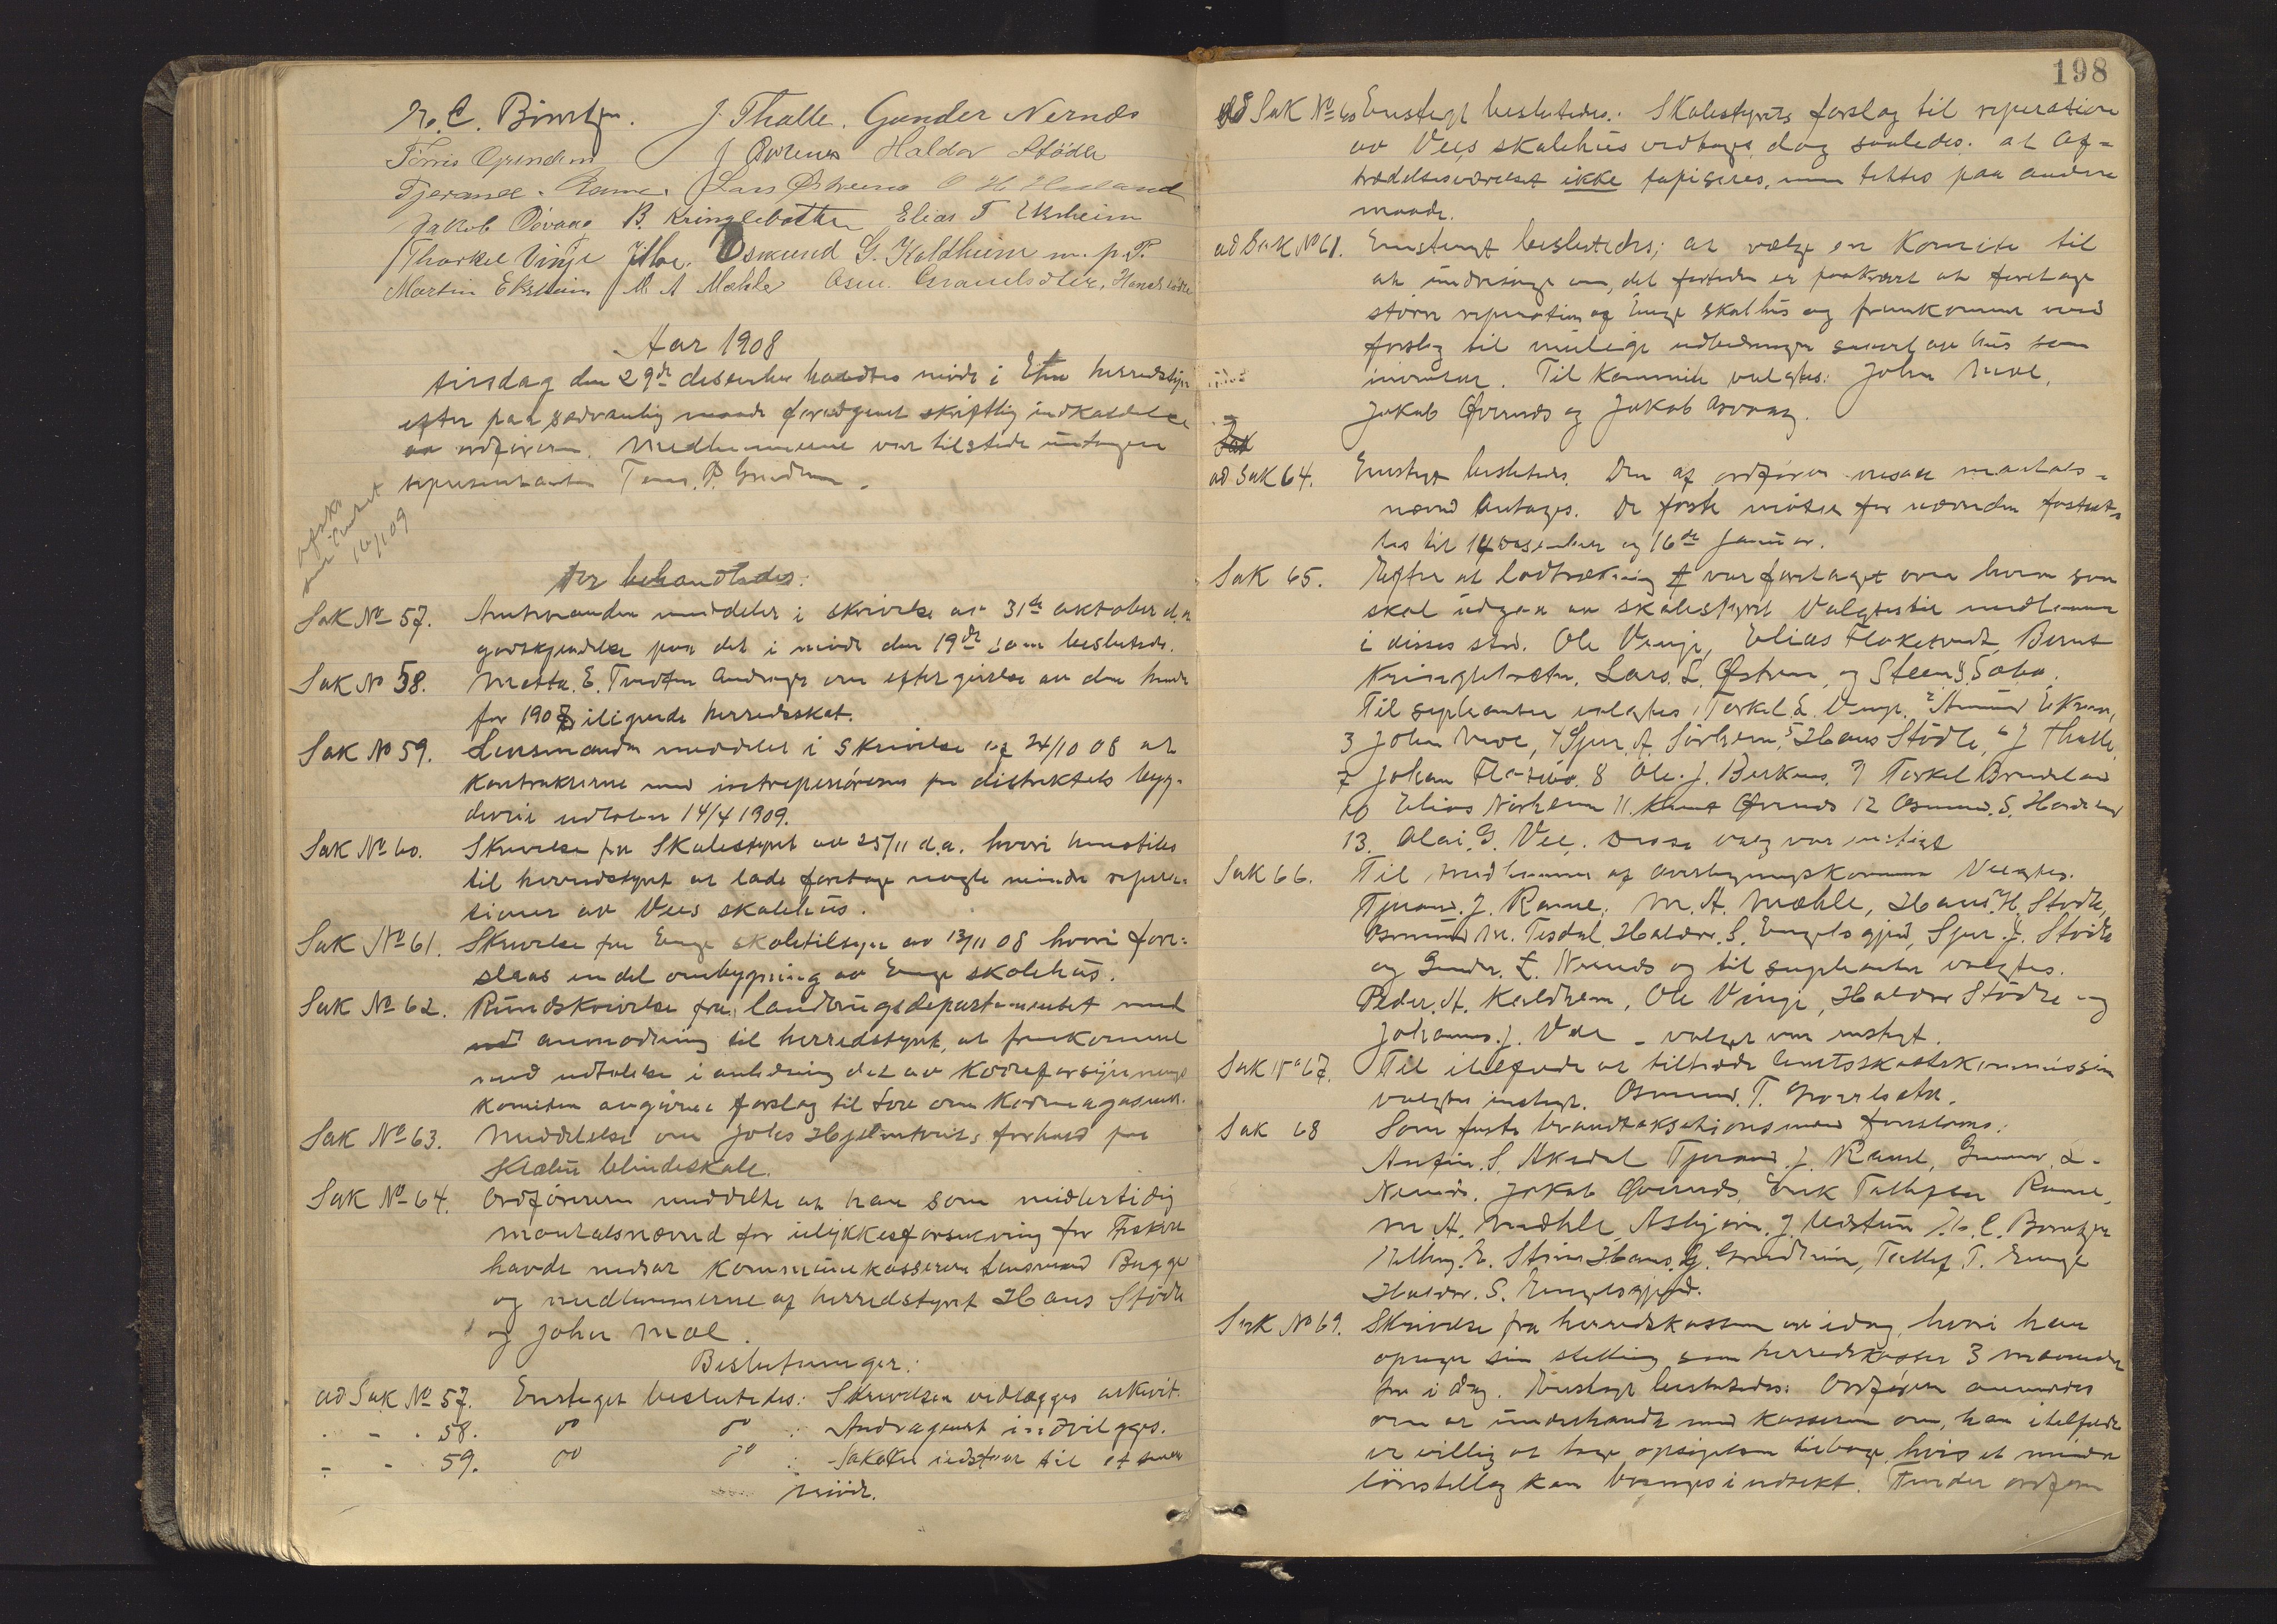 J. Thalle. Gunder Nernes
Haldor Stödle
Tjerand. Rame. Lars Østrem
Jakob Øovaag B. Kringlebotten Elias T Eksheim
Thorkel Vinje Osmund G. Kaldheim m. p. P.
Martin Ekrheim M A Mæhle Hans Stødle
Aar 1908
tirsdag den 29de desember holdtes möde i Etne herredstyre
efter paa sedvanlig maade foretaget skriftlig indkaldelse
av ordføreren. Medlemmerne var tilstede undtagen
representanten
16/1 09
Her behandledes:
Sak No 57. Amtmanden meddeler i skrivelse av 31te oktober d.a.
godkjendelse paa det i möde den 19de s.m. besluttede.
Sak No 58. Metta. E. Tvedten andrager om eftergivelse av den hende
for 1908 ilignede herredsskat.
Sak No 59. Lensmanden meddeler i skrivelse af 24/10 08 at
kontrakterne med entreprenörerne for distriktets lægs-
derie utløber 14/4 1909.
Sak No 60. Skrivelse fra Skolestyret av 25/11 d.a. hvori henstilles
til herredstyret at lade foretage nogle mindre repera-
tioner av Vees skolehüs.
Sak No 61. Skrivelse fra Enge skoletilsyn av 13/11 08 hvori fore-
slaas en del ombygning av Enge skolehüs.
Sak No 62. Rundskrivelse fra landbrugsdepartementet med
anmodning til herredstyret, at fremkomme
med udtalelse i anledning det av Kornforsynings
komiteen angivne forslag til lov om Kornmagasiner.
Sak No 63. Meddelelse om Johs Hjelmtveits forhold paa
Klæbu blindeskole.
Sak No 64. Ordføreren meddelte at han som midlertidig
mantalsnævnd for ulykkesforsikring for Fiskere
havde nedsat kommunekasserer lensmand Bugge
og medlemmerne af herredstyret Hans Stødle
og John Moe.
Beslutninger:
ad Sak No 57. Ensteget besluttedes: Skrivelsen vedlægges arkivet.
" - " 58. do do : Andragendet indvilges.
" - " 59. do do : Saken udstaar til et senere
möde.
198
ad Sak No 60 Enstegt besluttedes: Skolestyrets forslag til reperation
av Vees skolehüs vedtages, dog saaledes at af-
trædelsesværelset ikke tapiseres, men tettes paa anden
maade.
ad Sak No 61. Enstemt besluttedes; at vælge en Komite til
at undersøge om, det fortiden er paakrævet at foretage
större reperation af Enge skolhüs og fremkomme med
forslag til mulige udbedringer saavel av hüs som
inventar. Til Komite valgtes: John Moe,
Jakob Øvernes og Jakob Øovaag.
Sak
ad Sak 64. Enstegt besluttedes. Den af ordføreren nedsatte mantals-
nævnd antages. De første möter for nævnden fastset-
tes til 14 desember og 16de Januar.
Sak 65. Efter at lodtrækning var foretaget over hvem som
skal udgaa av skolestyret valgtes til medlemmer
i disses sted. Ole Vinje, Elias Flokketvedt, Bernt
Kringlebotten, Lars. L. Østrem, og Steen S. Sabø.
Til suplianter valgtes 1 Torkel L. Vinje. 2
3 John Moe, 4 Sjur. A. Sörheim, 5 Hans Stödle, 6 J Thalle
7 Johan 8 Ole. J. Berknes. 9 Torkel Brudeland
10 Elias Nörheim 11. Knut Øvernes 12 Osmund. S.
13. Olai. G. Vee. Disse valg var enstegt
Sak 66. Til medlemmer af overligningskommisionen valgtes.
Tjerand. J. Rame, M. A. Mæhle, Hans. H. Stødle,
Osmund M. Tesdal, Haldor. S. Engelsgjerd, Sjur. J. Stödle
og Gunder. L. Nernes og til suplianter valgtes.
Peder. A. Kaldheim, Ole Vinje, Haldor Stödle og
Johannes. J. Vee - valget var enstegt.
Sak No 67. Til itilfælde at tiltræde amtsskattekommissionen
valgtes enstegt. Osmund. T.
Sak 68 Som faste brandtakstionsmænd foreslaaes:
Anfin. S. Aksdal Tjerand. J. Rame, Gunder. L.
Nernes. Jakob Øvernes, Erik Tollefsen Rame,
M A. Mæhle, Asbjørn. J
Hans. G. Grindheim, Tollef. T. Enge
Haldor. S. Engelsgjerd.
Sak No 69. Skrivelse fra herredskassereren av idag, hvori han
opsiger sin stilling som herredskasser 3 maaneder
fra i dag. Enstegt besluttedes: Ordføreren anmodes
om at underhandle med kassereren om, han itilfælde
er villig at tage opsigelsen tilbage, hvis et mindre
lönstillæg kan bringes i udsikt. Finder ordføren